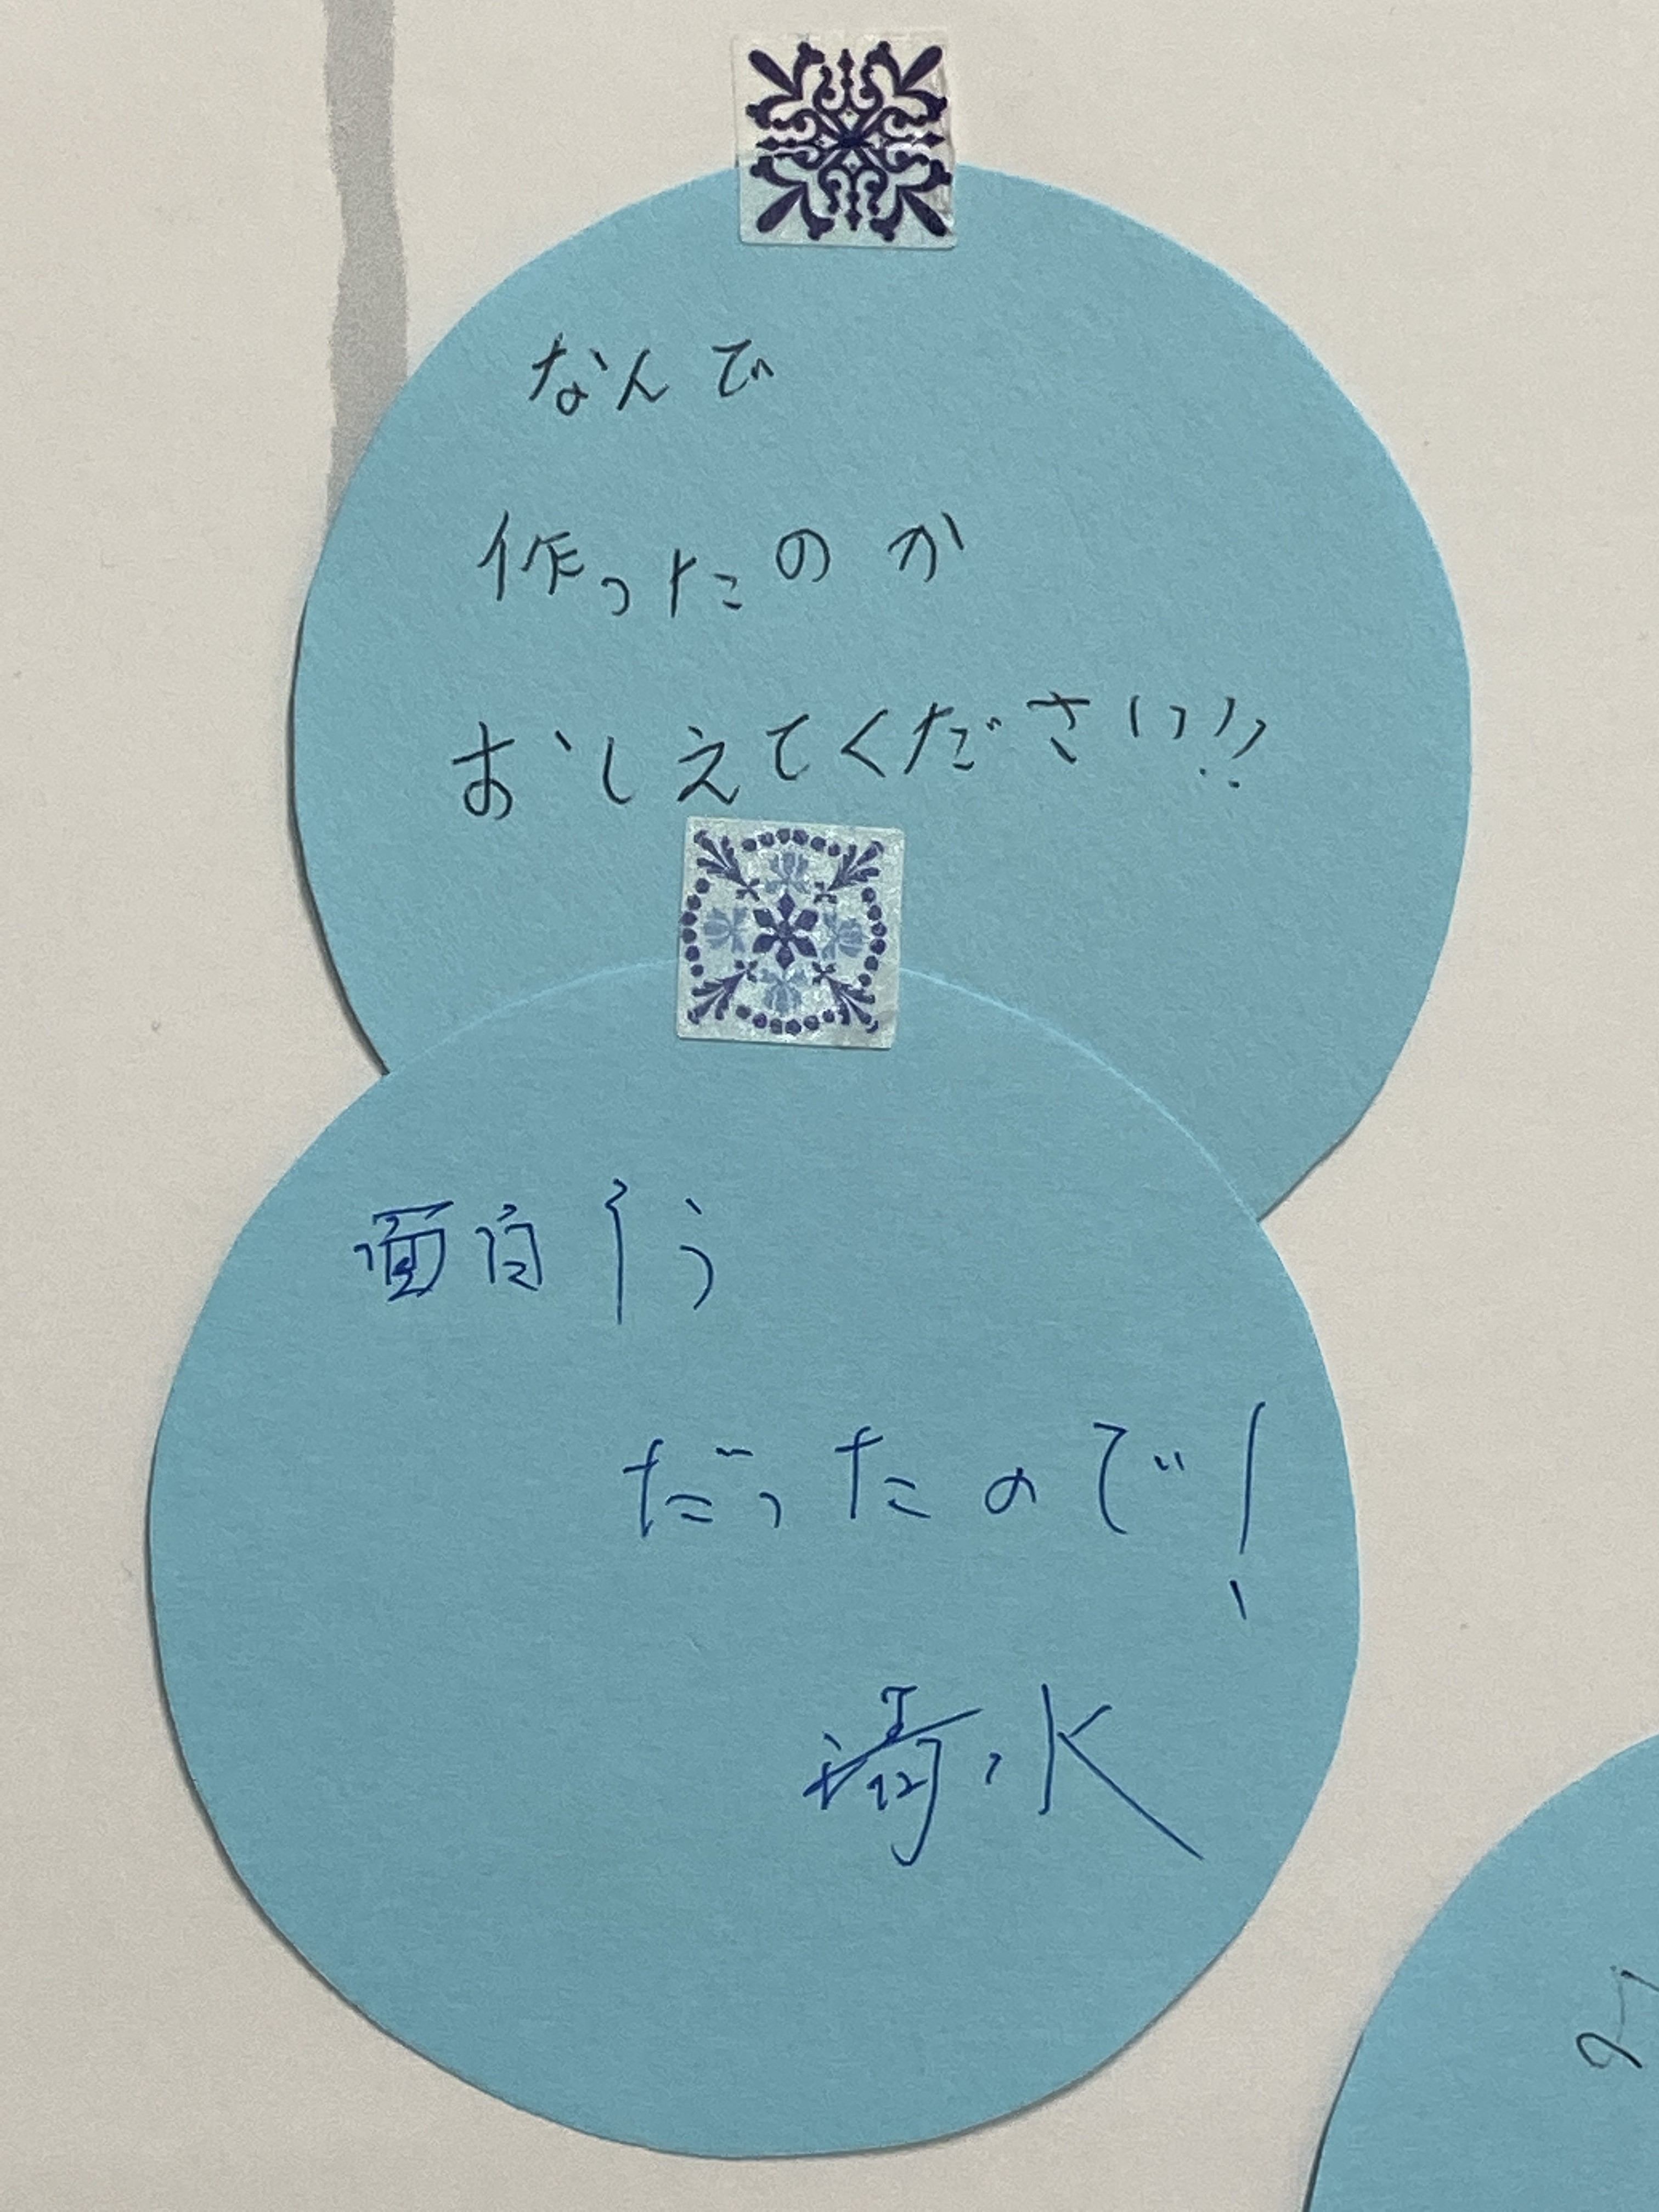 なんで
作ったのか
おしえてください!!
面白そう
だったので!
清水